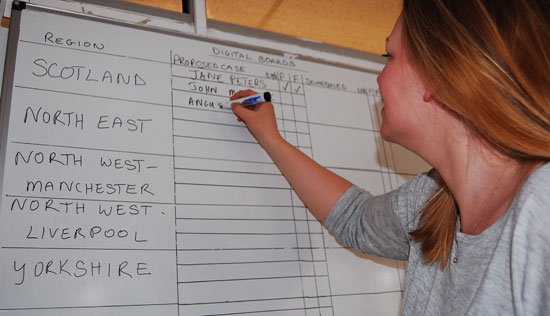 DIGITAL BOARDS
REGION
PROPOSED CASE
SCHEDULED
SCOTLAND
JANE PETERS ✓ ✓
JOHN
ANGUS
NORTH EAST
NORTH WEST-
MANCHESTER
NORTH WEST-
LIVERPOOL
YORKSHIRE